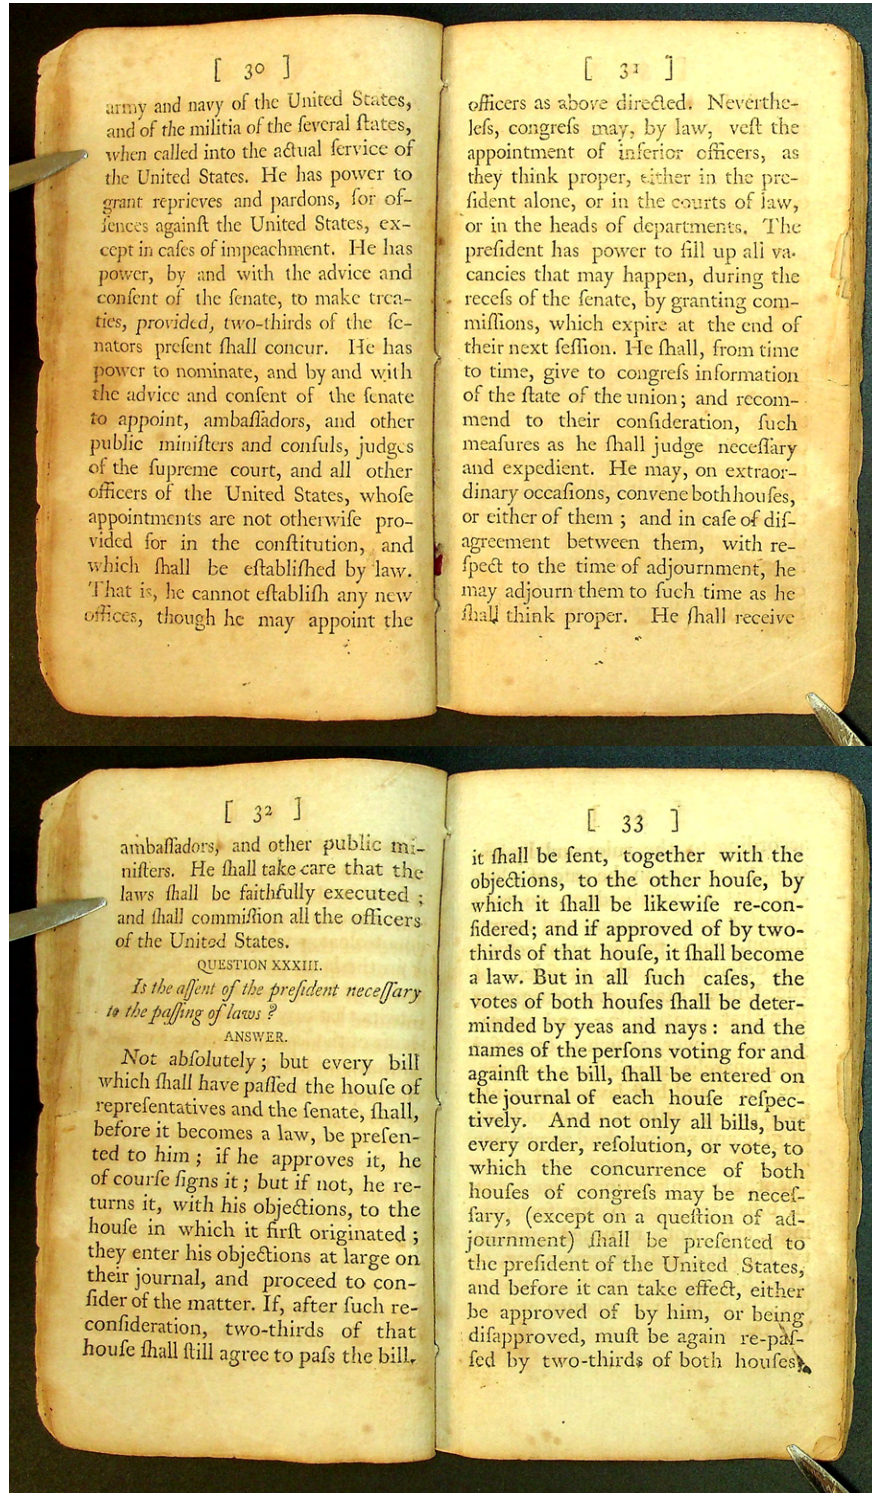 [ 30 ]
army and navy of the United States,
and of the militia of the ſeveral ſtates,
when called into the actual ſervice of
the United States. He has power to
grant reprieves and pardons, for of-
fences againſt the United States, ex-
cept in caſes of impeachment. He has
power, by and with the advice and
conſent of the ſenate, to make trea-
ties, provided, two-thirds of the ſe-
nators preſent ſhall concur. He has
power to nominate, and by and with
the advice and conſent of the ſenate
to appoint, ambaſſadors, and other
public miniſters and conſuls, judges
of the ſupreme court, and all other
officers of the United States, whoſe
appointments are not otherwiſe pro-
vided for in the conſtitution, and
which ſhall be eſtabliſhed by law.
That is, he cannot eſtabliſh any new
offices, though he may appoint the
[ 31 ]
officers as above directed. Neverthe-
leſs, congreſs may, by law, veſt the
appointment of inferior officers, as
they think proper, either in the pre-
ſident alone, or in the courts of law,
or in the heads of departments. The
preſident has power to fill up all va-
cancies that may happen, during the
receſs of the ſenate, by granting com-
miſſions, which expire at the end of
their next ſeſſion. He ſhall, from time
to time, give to congreſs information
of the ſtate of the union; and recom-
mend to their conſideration, ſuch
meaſures as he ſhall judge neceſſary
and expedient. He may, on extraor-
dinary occaſions, convene both houſes,
or either of them ; and in caſe of diſ-
agreement between them, with re-
ſpect to the time of adjournment, he
may adjourn them to ſuch time as he
ſhall think proper. He ſhall receive
[ 32 ]
ambaſſadors, and other public mi-
niſters. He ſhall take care that the
laws ſhall be faithfully executed ;
and ſhall commiſſion all the officers
of the United States.
QUESTION XXXIII.
Is the aſſent of the preſident neceſſary
to the paſſing of laws ?
ANSWER.
Not abſolutely ; but every bill
which ſhall have paſſed the houſe of
repreſentatives and the ſenate, ſhall,
before it becomes a law, be preſen-
ted to him ; if he approves it, he
of courſe ſigns it ; but if not, he re-
turns it, with his objections, to the
houſe in which it firſt originated ;
they enter his objections at large on
their journal, and proceed to con-
ſider of the matter. If, after ſuch re-
conſideration, two-thirds of that
houſe ſhall ſtill agree to paſs the bill,
[ 33 ]
it ſhall be ſent, together with the
objections, to the other houſe, by
which it ſhall be likewiſe re-con-
ſidered; and if approved of by two-
thirds of that houſe, it ſhall become
a law. But in all ſuch caſes, the
votes of both houſes ſhall be deter-
minded by yeas and nays : and the
names of the perſons voting for and
againſt the bill, ſhall be entered on
the journal of each houſe reſpec-
tively. And not only all bills, but
every order, reſolution, or vote, to
which the concurrence of both
houſes of congreſs may be neceſ-
ſary, (except on a queſtion of ad-
journment) ſhall be preſented to
the preſident of the United States,
and before it can take effect, either
be approved of by him, or being
diſapproved, muſt be again re-paſ-
ſed by two-thirds of both houſes,